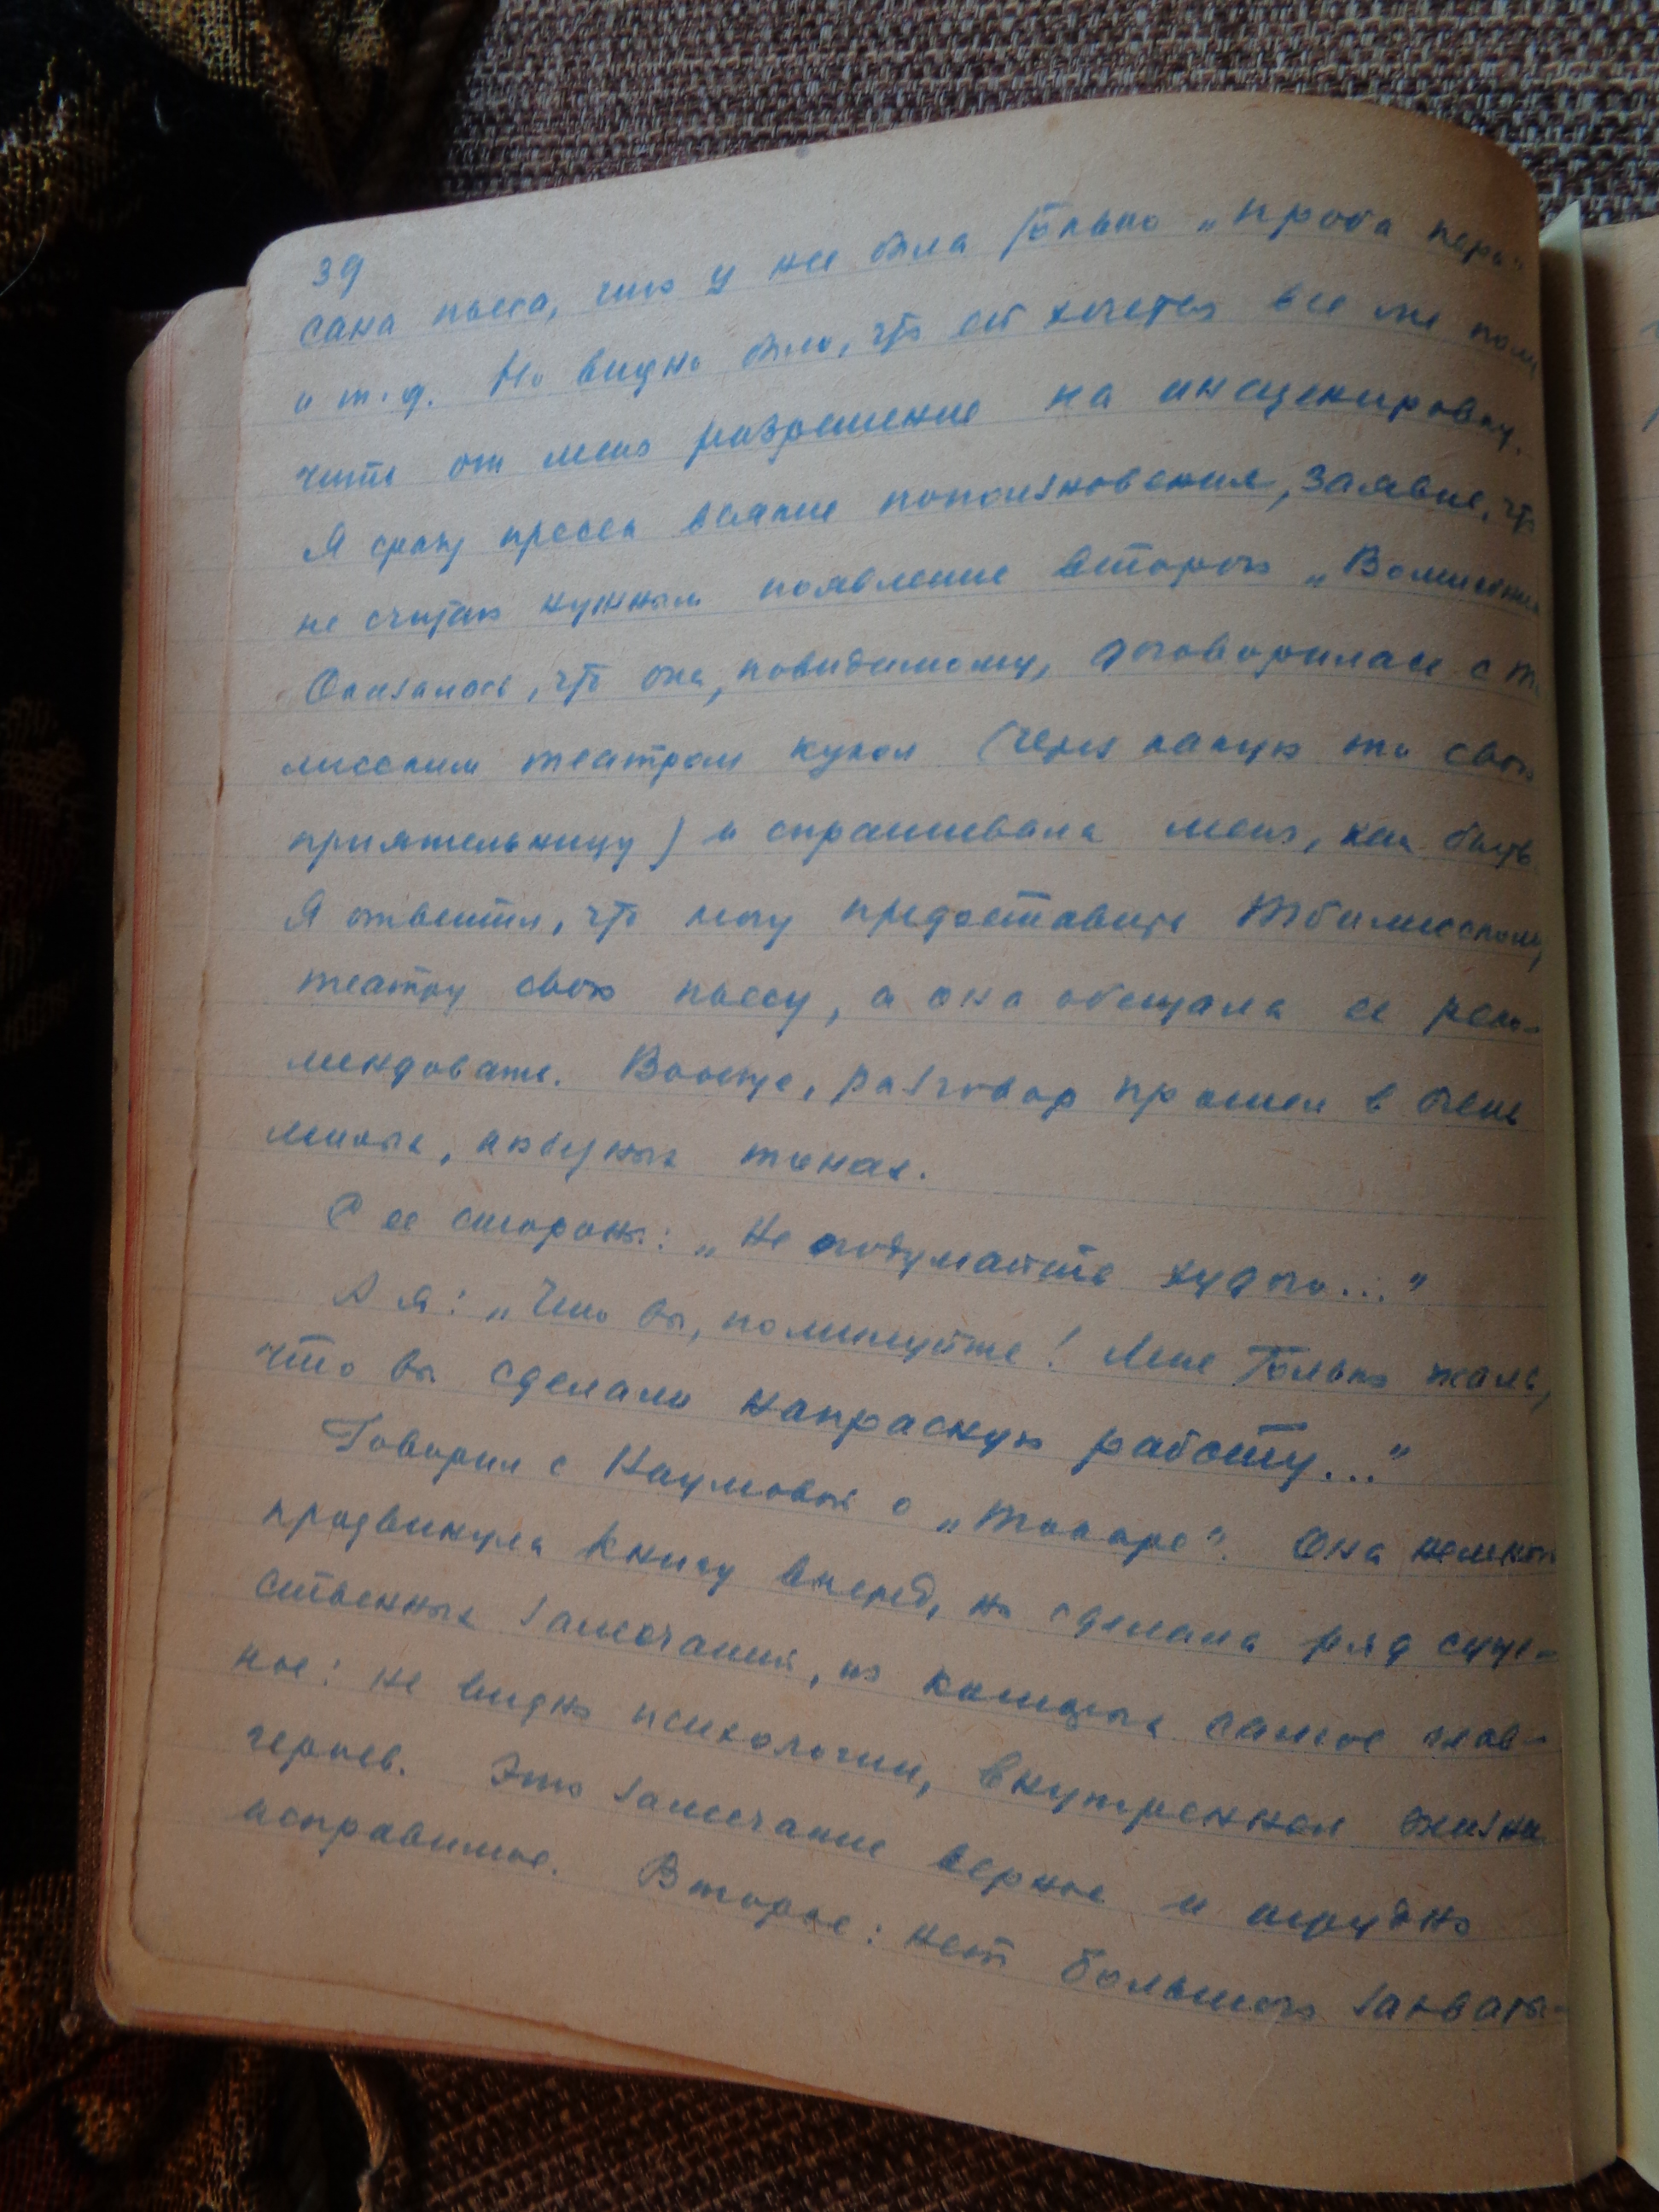 39
сана пьеса, что у нее была только „проба пера"
и т.д. Но видно было, что ей хочется все же полу
чить от меня разрешение на инсценировку.
Я сразу пресек всякие поползновения, заявив, что
не считаю нужным появление второго „Волшебни
Оказалось, что она, повидимому, договорилась с т
лисским театром кукол (через какую то свою
приятельницу) и спрашивала меня, как быть.
Я ответил, что могу предоставить Тбилисскому
театру свою пьесу, а она обещала ее реко-
мендовать. Вообще, разговор прошел в очень
милых, любезных тонах.
С ее стороны: „Не подумайте худого..."
А я: „Что вы, помилуйте! Мне только жаль,
что вы сделали напрасную работу..."
Говорил с Наумовой о „Токаре". Она немного
продвинула книгу вперед, но сделала ряд суще-
ственных замечаний, из которых самое глав-
ное: не видно психологии, внутренней жизни
героев. Это замечание верное и трудно
исправимое. Второе: нет большого захваты-